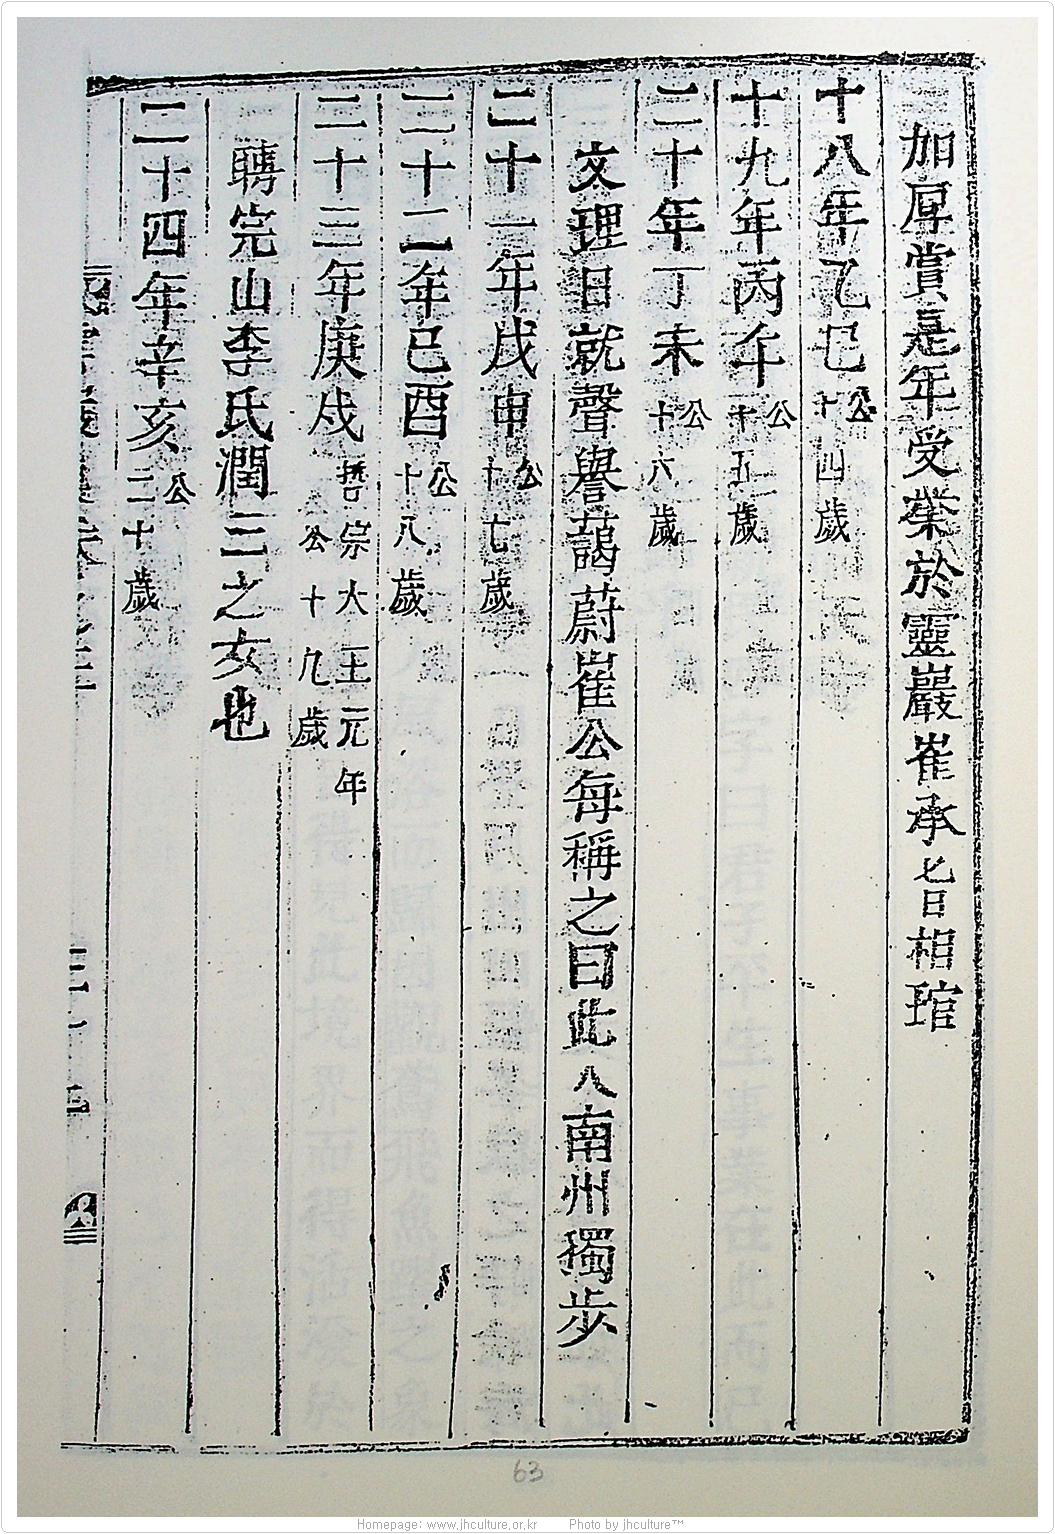 加厚賞是年受業於靈巖崔承旨相琯
十八年乙巳公十四歲
十九年丙午公十五歲
二十年丁未公十六歲
文理日就聲譽藹蔚崔公每稱之曰此人南州獨步
二十一年戊申公十七歲
二十二年己酉公十八歲
二十三年庚戌哲宗大王元年公十九歲
聘完山李氏潤三之女也
二十四年辛亥公二十歲
63
Homepage: www.jhculture.or.kr Photo by jhculture™